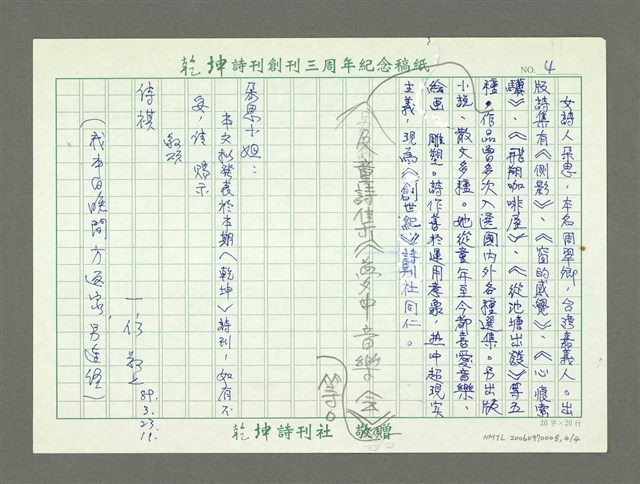 乾坤詩刊創刊三周年紀念稿紙
NO. 4
女詩人朵思，本名周翠卿，台灣嘉義人。出
版詩集有《側影》、《窗的感覺》、《心痕索
驥》、《飛翔咖啡屋》、《從池塘出發》等五
種，作品曾多次入選國內外各種選集。另出版
小說、散文多種。她從童年至今都喜愛音樂、
繪画、雕塑。詩作善於運用意象，热中超現实
主義，現為《創世紀》詩刊社同仁。
及童詩集《夢中音樂会》
等。
朵思小姐：
本文擬發表於本期《乾坤》詩刊，如有不
妥，请賜示
敬頌
侍祺
一信敬上
89.
3.
23.
11.
乾坤詩刊社 敬贈
20字×20行
NMTL 20060970008, 4/4